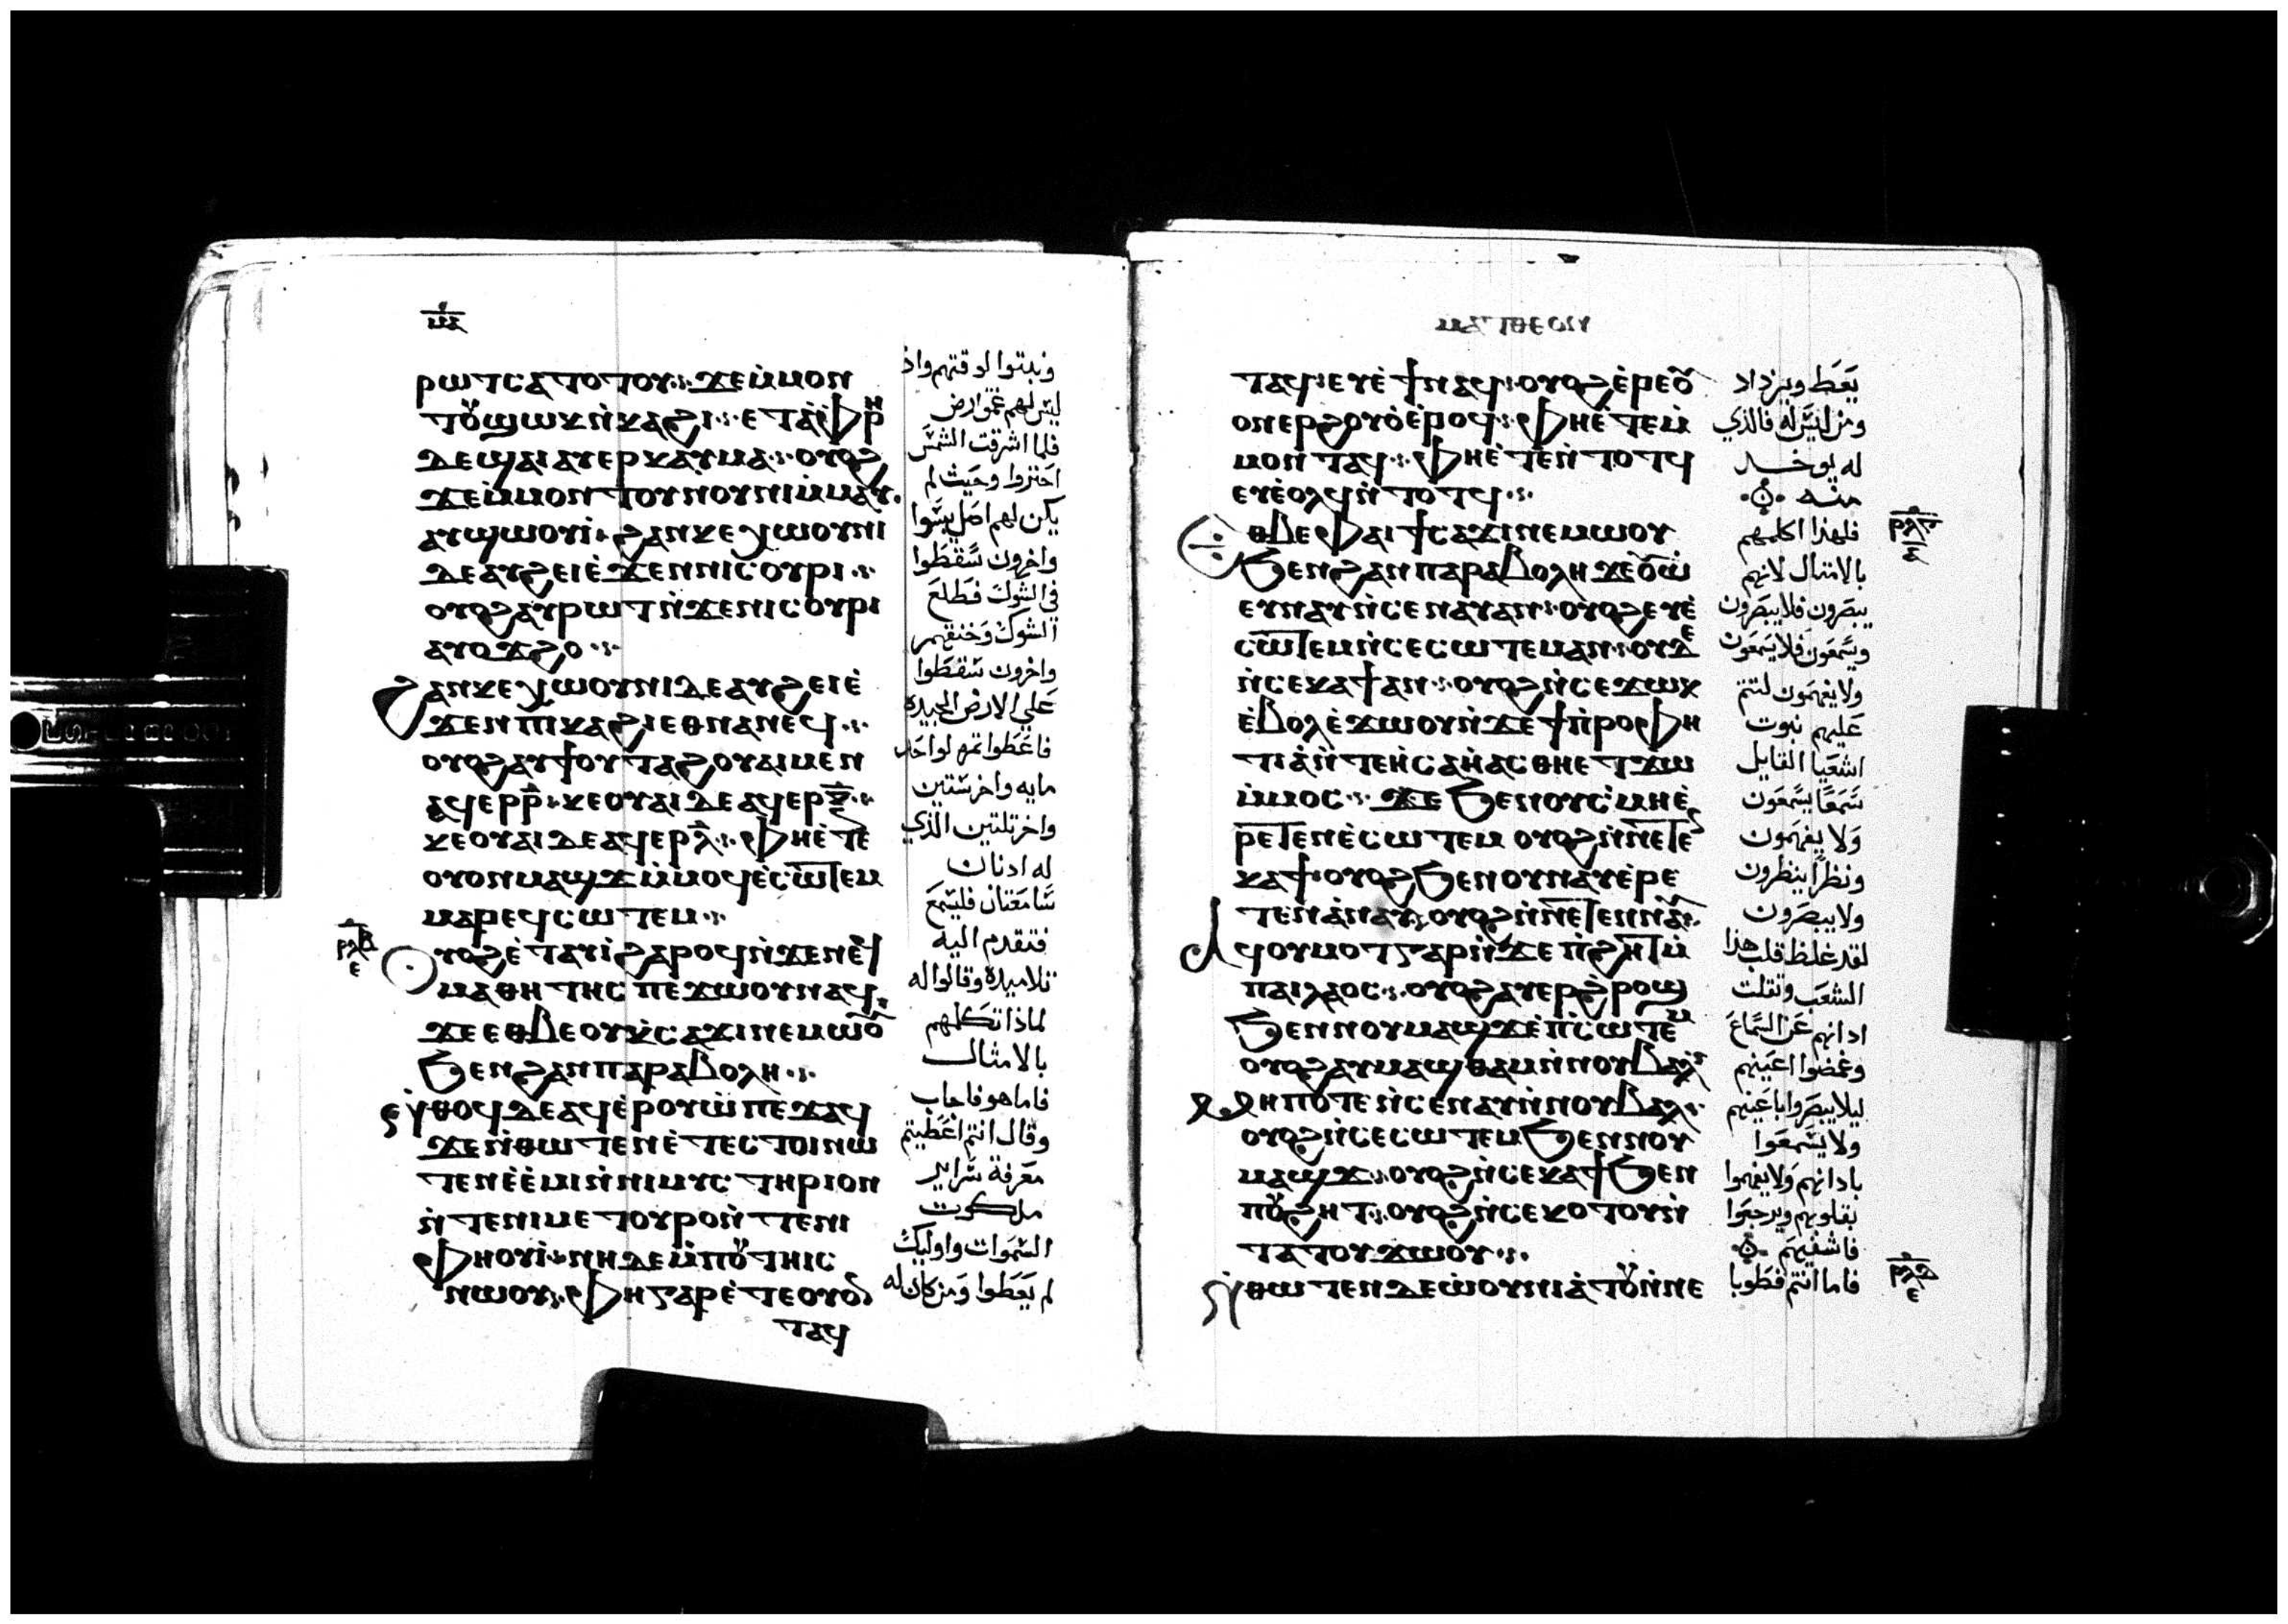 ⲙⲁ
ⲣⲱⲧⲥⲁⲧⲟⲧⲟⲩ⁘ ϫⲉⲙ̇ⲙⲟⲛ
ⲇⲉϣⲁⲓ ⲁⲩⲉⲣⲕⲁⲩⲙⲁ⁘ ⲟⲩⲟϩ
ϫⲉⲙ̇ⲙⲟⲛⲧⲟⲩⲛⲟⲩⲛⲓⲙ̇ⲙⲁⲩ·
ⲁⲩϣⲱⲟⲩⲓ̇⁘ ϩⲁⲛⲕⲉⲭⲱⲟⲩⲛⲓ
ⲇⲉⲁⲩϩⲉⲓⲉ̇ϫⲉⲛⲛⲓⲥⲟⲩⲣⲓ⁘
ⲟⲩⲟϩⲁⲩⲣⲱⲧⲛ̇ϫⲉⲛⲓⲥⲟⲩⲣⲓ
ⲁⲩⲟϫϩⲟ⁘
ϩⲁⲛⲕⲉⲭⲱⲟⲩⲛⲓⲇⲉⲁⲩϩⲉⲓⲉ̇
ϫⲉⲛⲡⲓⲕⲁϩⲓⲉⲑⲛⲁⲛⲉϥ⁘
ⲟⲩⲟϩⲁⲩϯⲟⲩⲧⲁϩⲟⲩⲁⲓⲙⲉⲛ
ⲁϥⲉⲣⲣ̅⁘ ⲕⲉⲟⲩⲁⲓⲇⲉⲁϥⲉⲣⲝ̅⁘
ⲕⲉⲟⲩⲁⲓⲇⲉⲁϥⲉⲣⲗ̅⁘ ⲫⲏⲉ̇ⲧⲉ
ⲟⲩⲟⲛⲙⲁϣϫⲙ̇ⲙⲟϥⲉ̇ⲥⲱⲧⲉⲙ
ⲙⲁⲣⲉϥⲥⲱⲧⲉⲙ⁘
ⲣⲗⲃ
ⲉ
ⲟⲩⲟϩⲉ̇ⲧⲁⲩⲓ̇ϩⲁⲣⲟϥⲛ̇ϫⲉⲛⲉϥ
ⲙⲁⲑⲏⲧⲏⲥ ⲡⲉϫⲱⲟⲩⲛⲁϥ⁘
ϫⲉⲉⲑⲃⲉⲟⲩⲕ̇ⲥⲁϫⲓⲛⲉⲙⲱⲟⲩ
ϧⲉⲛϩⲁⲛⲡⲁⲣⲁⲃⲟⲗⲏ⁘
ⲛ̇ⲑⲟϥⲇⲉⲁϥⲉ̇ⲣⲟⲩⲱ̇ⲡⲉϫⲁϥ
ϫⲉⲛ̇ⲑⲱⲧⲉⲛⲉ̇ⲧⲉⲥⲧⲟⲓⲛⲱ
ⲧⲉⲛⲉ̇ⲉ̇ⲙⲓⲛ̇ⲛⲓⲙⲩⲥⲧⲏⲣⲓⲟⲛ
ⲛ̇ⲧⲉⲛⲓⲙⲉⲧⲟⲩⲣⲟⲛ̇ⲧⲉⲛⲓ
ⲫⲏⲟⲩⲓ̇⁘ ⲛⲏⲇⲉⲙ̇ⲡⲟⲩⲧⲏⲓⲥ
ⲛⲱⲟⲩ⁘ ⲫⲏⲅⲁⲣⲉ̇ⲧⲉⲟⲩⲟⲛ
ⲧⲁϥ
ليس لهم عمق ارض
فلما اشرقت الشمس
احترقوا وحيث لم
يكن لهم اصل يبسوا
واخرون سقطوا
في الشوك فطلع
الشوك وخنقهم
واخرون سقطوا
علي الارض الجيده
فاعطوا ثمره لواحد
مايه واخر ستين
واخر تلتين الذي
له ادنان
سامعتان فليسمع
فتقدم اليه
تلاميده وقالوا له
لماذا تكلمهم
بالامثال
فاما هو فاجاب
وقال انتم اعطيتم
معرفة سراير
ملكوت
السموات واوليك
لم يعطوا ومن كان له
ⲙⲁⲧⲑⲉⲟⲛ
ⲧⲁϥ⁘ ⲉⲩⲉ̇ϯⲛⲁϥ⁘ ⲟⲩⲟϩⲉ̇ⲣⲉⲟⲩ
ⲟⲛⲉⲣϩⲟⲩⲟ̇ⲉ̇ⲣⲟϥ⁘ ⲫⲏⲉ̇ⲧⲉⲙ̇
ⲙⲟⲛⲧⲁϥ⁘ ⲫⲏⲉ̇ⲧⲉⲛ̇ⲧⲟⲧϥ
ⲉⲩⲉ̇ⲟⲗϥⲛ̇ⲧⲟⲧϥ⁘
ⲉⲑⲃⲉⲫⲁⲓϯⲥⲁϫⲓⲛⲉⲙⲱⲟⲩ
ϧⲉⲛϩⲁⲛⲡⲁⲣⲁⲃⲟⲗⲏ
ⲉⲩⲛⲁⲩⲛ̇ⲥⲉⲛⲁⲩⲁⲛ⁘ ⲟⲩⲟϩⲉⲩⲉ̇
ⲥⲱⲧⲉⲙⲛ̇ⲥⲉⲥⲱⲧⲉⲙⲁⲛ⁘ ⲟⲩⲇⲉ
ⲛ̇ⲥⲉⲕⲁϯⲁⲛ⁘ ⲟⲩⲟϩⲛ̇ⲥⲉϫⲱⲕ
ⲉ̇ⲃⲟⲗⲉ̇ϫⲱⲟⲩⲛ̇ϫⲉϯⲡ̇ⲣⲟⲫⲏ
ⲧⲓⲁ̇ⲛ̇ⲧⲉⲏ̇ⲥⲁⲏ̇ⲁⲥⲑⲏⲉⲧϫⲱ
ⲙ̇ⲙⲟⲥ⁘ ϫⲉϧⲉⲛⲟⲩⲥⲙⲏⲉ̇
ⲣⲉⲧⲉⲛⲉ̇ⲥⲱⲧⲉⲙ ⲟⲩⲟϩⲛ̇ⲛⲉⲧⲉⲛ
ⲕⲁϯ⁘ ⲟⲩⲟϩϧⲉⲛⲟⲩⲛⲁⲩⲉ̇ⲣⲉ
ⲧⲉⲛⲁ̇ⲛⲁⲩ⁘ ⲟⲩⲟϩⲛ̇ⲛⲉⲧⲉⲛⲛⲁⲩ⁘
ⲁϥⲟⲩⲙⲟⲧⲅⲁⲣⲛ̇ϫⲉⲡ̇ϩⲏⲧⲙ̇
ⲡⲁⲓⲗⲁⲟⲥ⁘ ⲟⲩⲟϩⲁⲩⲉⲣϩ̇ⲣⲟϣ
ϧⲉⲛⲛⲟⲩⲙⲁϣϫⲉ̇ⲡ̇ⲥⲱⲧⲉⲙ
ⲟⲩⲟϩⲁⲩⲙⲁϣⲑⲁⲙⲛ̇ⲛⲟⲩⲃⲁⲗ⁘
ⲙⲏⲡⲟⲧⲉⲛ̇ⲥⲉⲛⲁⲩⲛ̇ⲛⲟⲩⲃⲁⲗ⁘
ⲟⲩⲟϩⲛ̇ⲥⲉⲥⲱⲧⲉⲙϧⲉⲛⲛⲟⲩ
ⲙⲁϣϫ⁘ ⲟⲩⲟϩⲛ̇ⲥⲉⲕⲁϯϧⲉⲛ
ⲡⲟⲩϩⲏⲧ⁘ ⲟⲩⲟϩⲛ̇ⲥⲉⲕⲟⲧⲟⲩⲛ̇
ⲧⲁⲧⲟⲩϫⲱⲟⲩ⁘
ⲛ̇ⲑⲱⲧⲉⲛⲇⲉⲱ̇ⲟⲩⲛⲓⲁ̇ⲧⲟⲩⲛ̇ⲛⲉ
يعطا ويزداد
ومن ليس له فالذي
له يوخد
منه
فلهذا اكلمهم
بالامثال لانهم
يبصرون فلا يبصرون
ويسمعون فلا يسمعون
ولا يفهمون لتتم
عليهم نبوت
اشعيا القايل
سمعا يسمعون
ولا يفهمون
ونظرا ينظرون
ولا يبصرون
لقد غلظ قلب هذا
الشعب وتقلت
ادانهم عن السماع
وغمضوا اعينهم
ليلا يبصروا باعينهم
ولا يسمعوا
بادانهم ولا يفهموا
بقلوبهم ويرجعوا
فاشفيهم
فاما انتم فطوبا